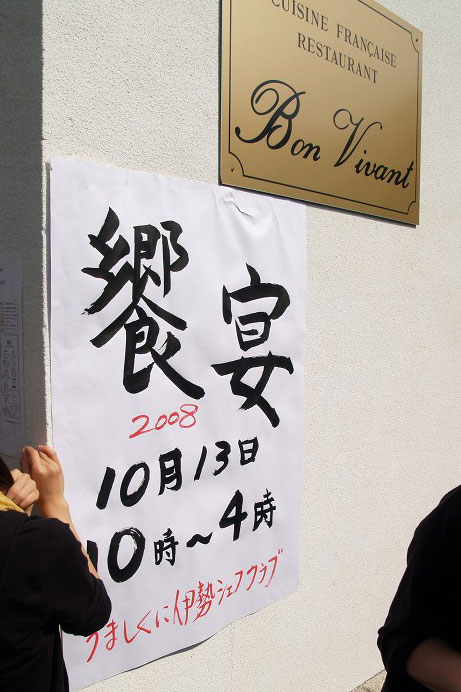 CUISINE FRANÇAISE
RESTAURANT
Bon Vivant
饗宴
2008
10月13日
10時~4時
うましくに伊勢シェフクラブ